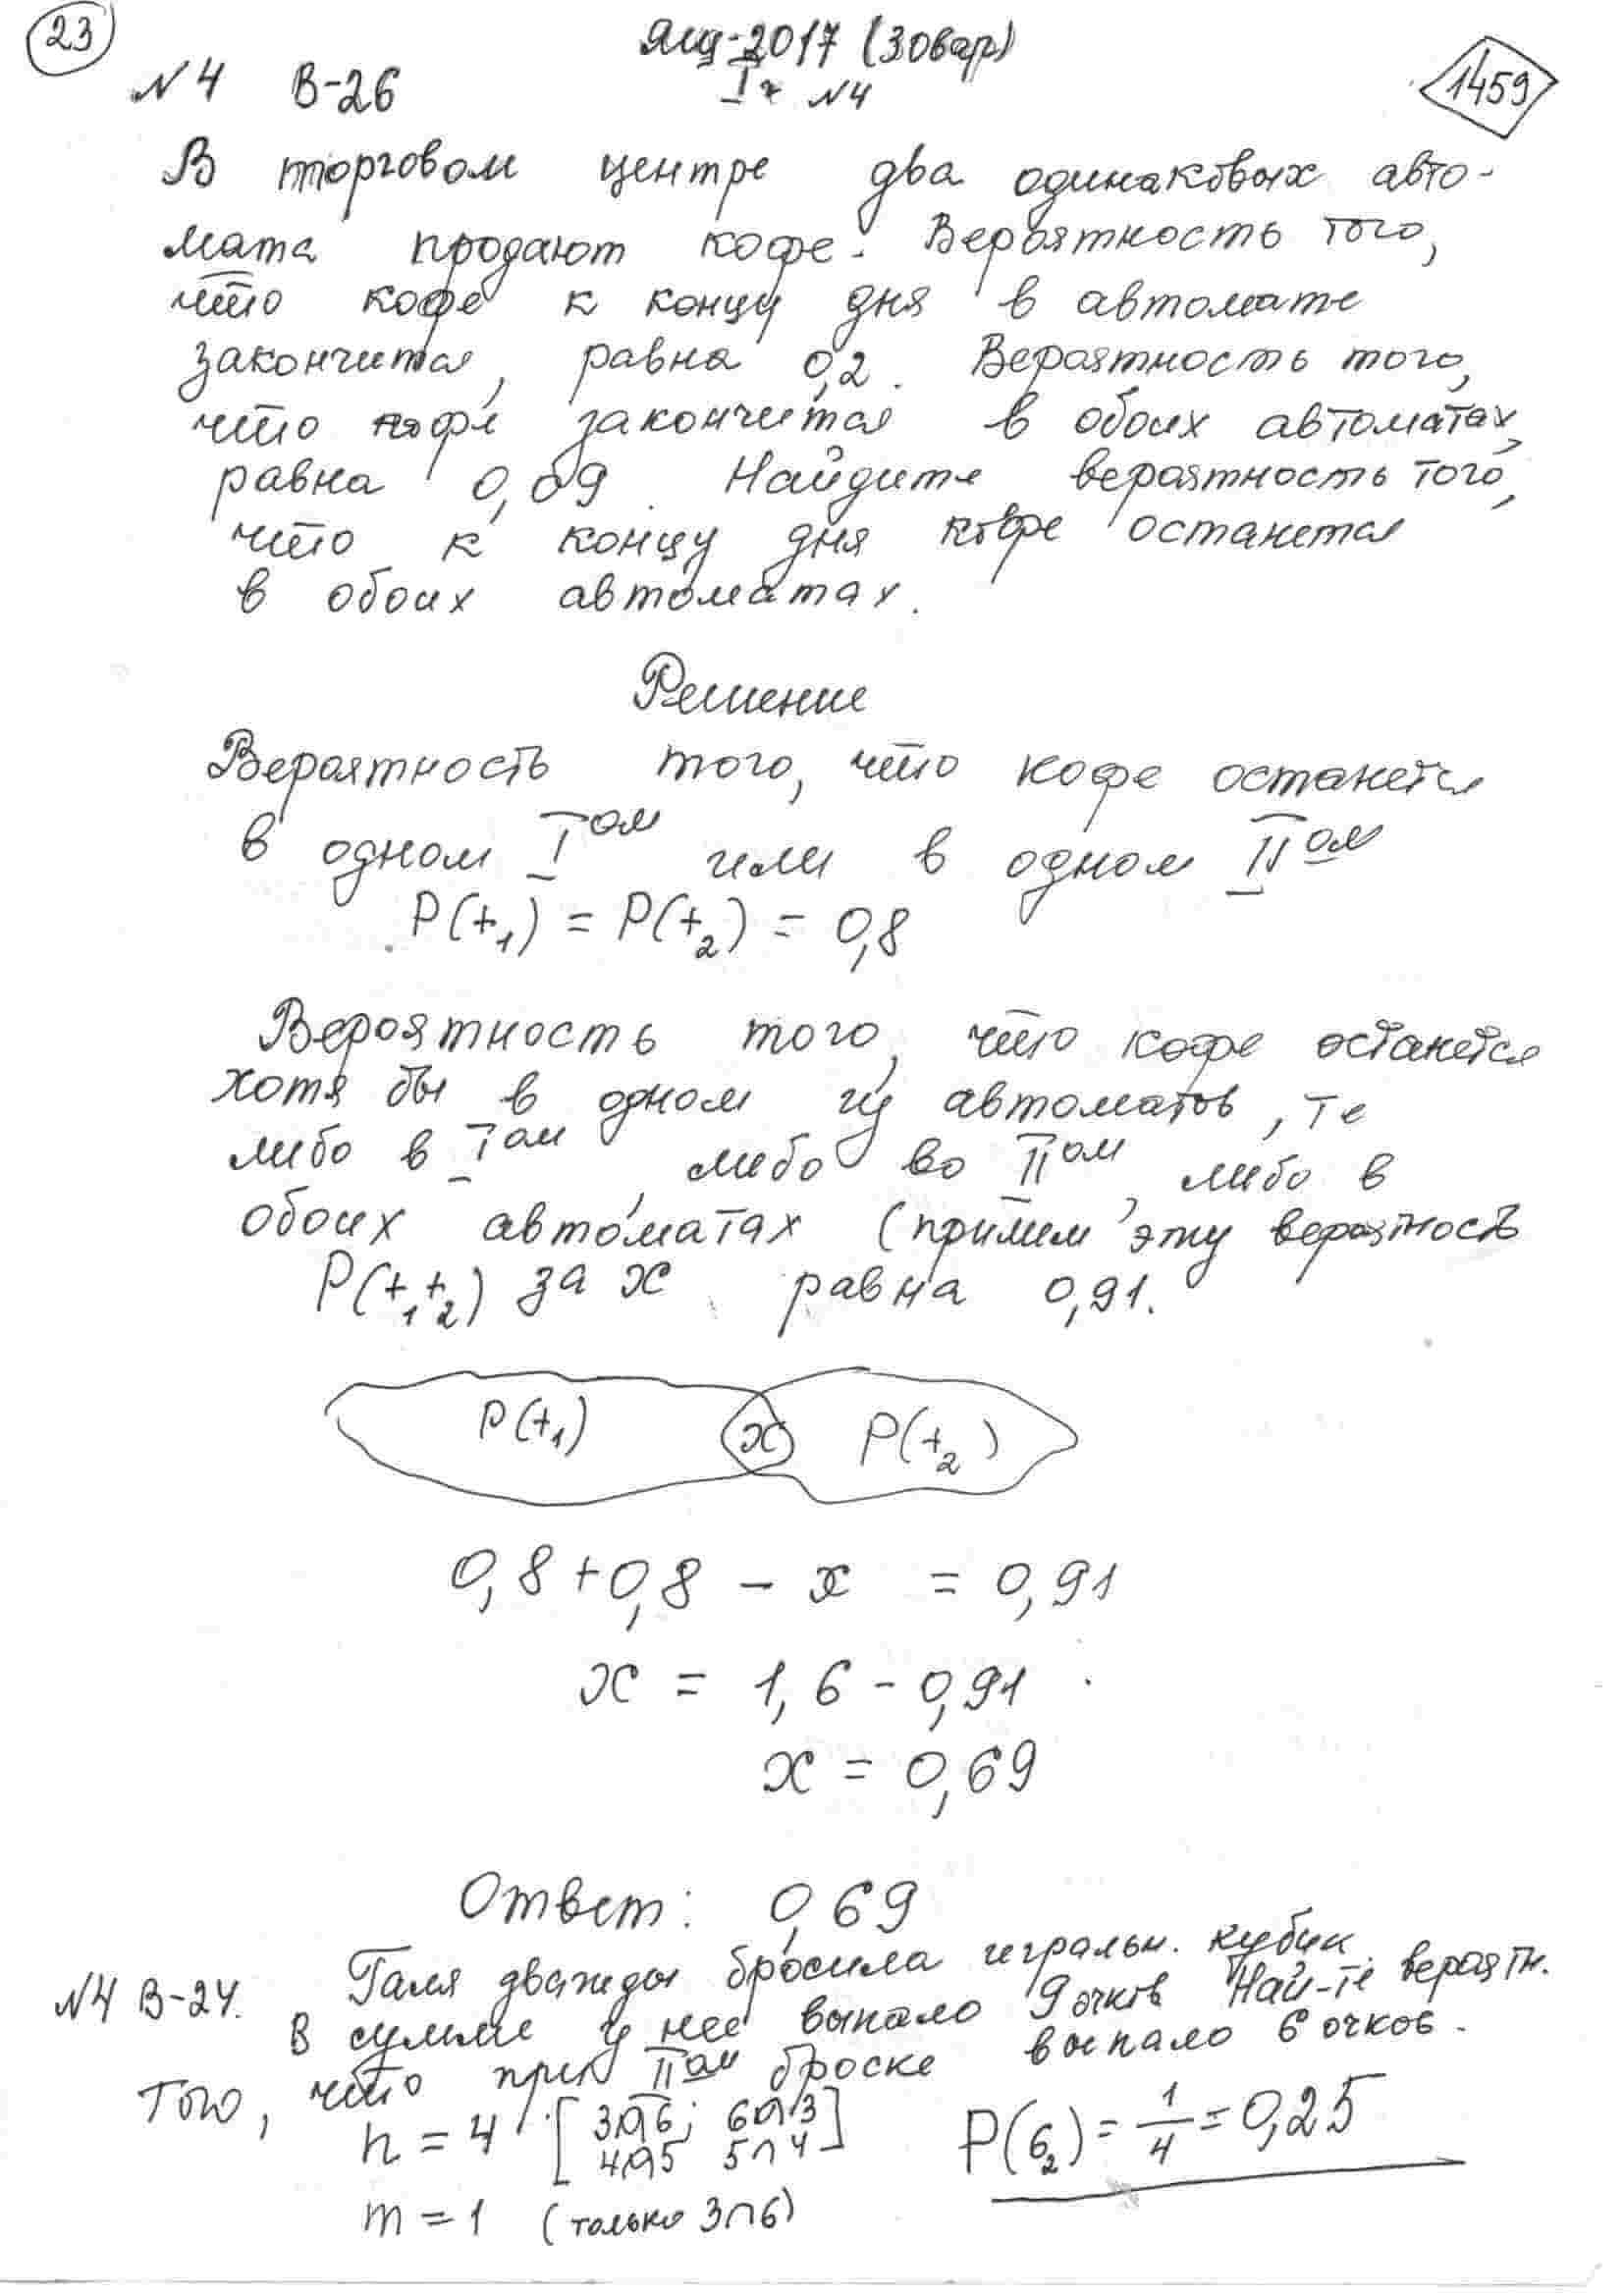 23
Ящ-2017 (30вар)
I* N4
1459
N4 В-26
В торговом центре два одинаковых авто-
мата продают кофе. Вероятность того,
что кофе к концу дня в автомате
закончится, равна 0,2. Вероятность того,
что кофе закончится в обоих автоматах,
равна 0,09. Найдите вероятность того,
что к концу дня кофе останется
в обоих автоматах.
Решение
Вероятность того, что кофе останется
в одном I ом или в одном II ом
P(+₁) = P(+₂) = 0,8
Вероятность того, что кофе останется
хотя бы в одном из автоматов, те
либо в I ом, либо во II ом, либо в
обоих автоматах (примем эту вероятность
P(+₁+₂) за x равна 0,91.
P(+₁) x P(+₂)
0,8 + 0,8 - x = 0,91
x = 1,6 - 0,91
x = 0,69
Ответ: 0,69
N4 В-24. Галя дважды бросила игральн. кубик.
В сумме у нее выпало 9 очков Най-те вероятн.
того, что при II ом броске выпало 6 очков.
n = 4 [3∩6; 6∩3
4∩5 5∩4]
P(6₂) = 1/4 = 0,25
m = 1 (только 3∩6)